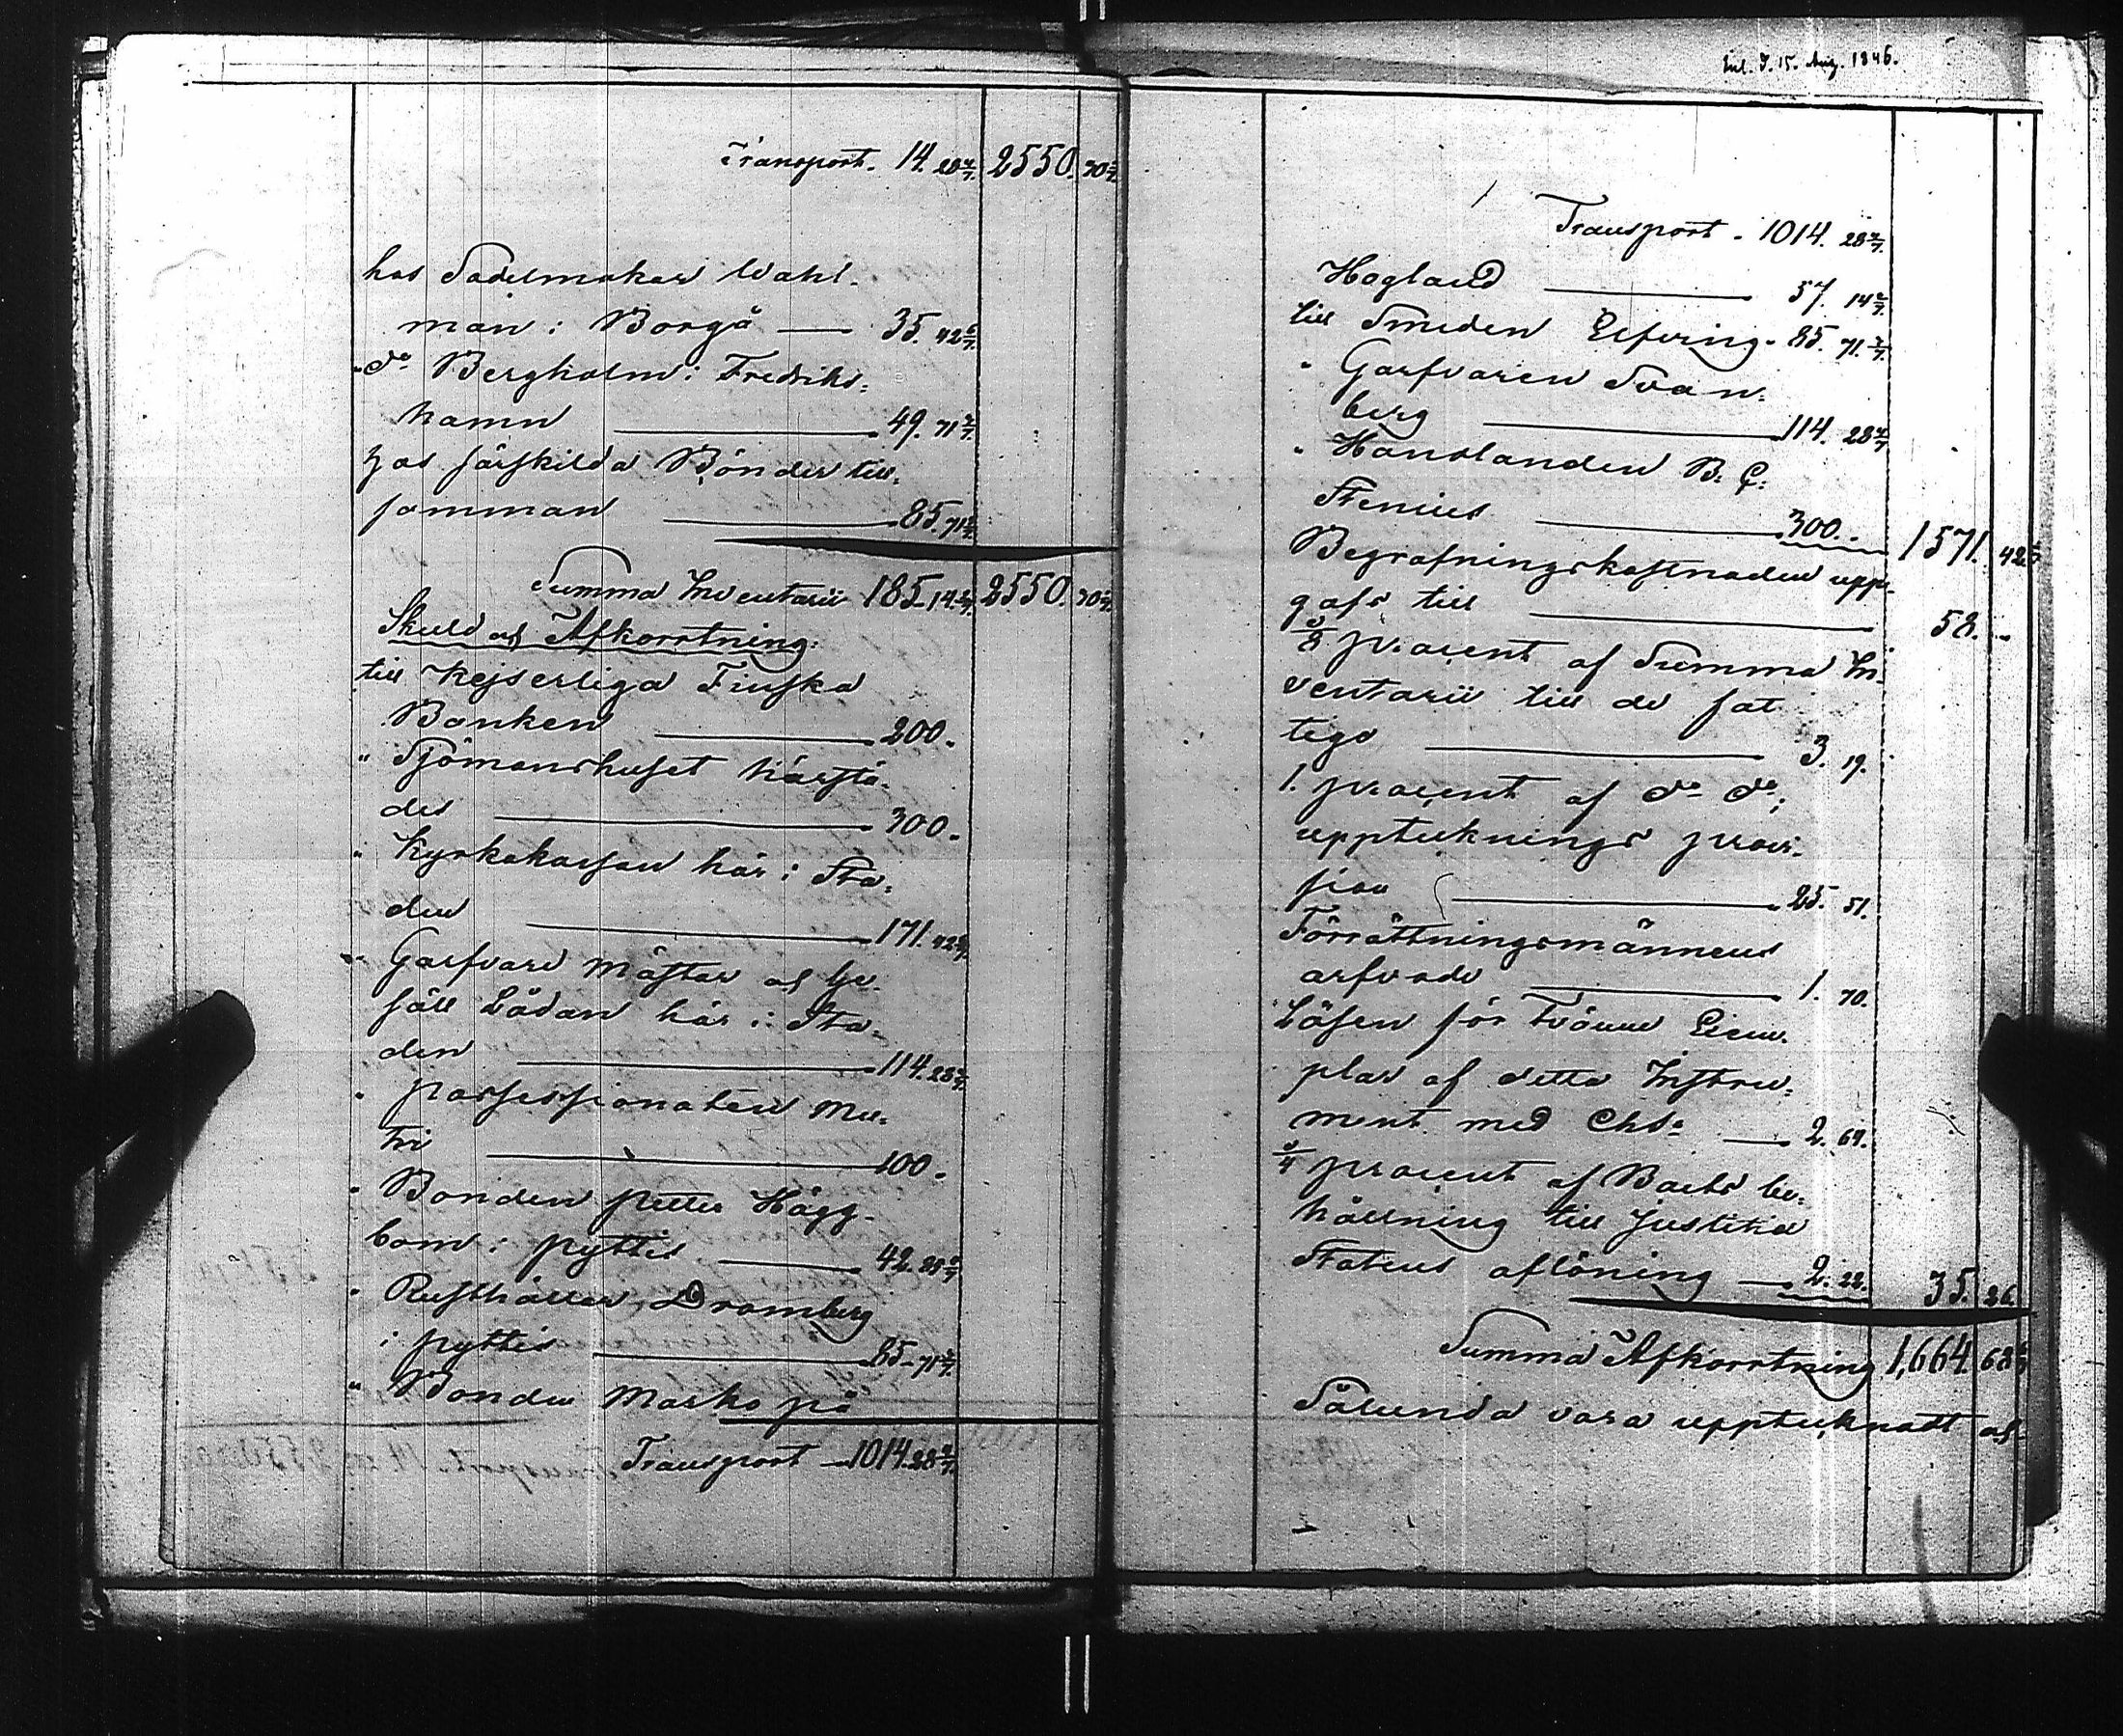 Inl. d. 15. Aug. 1846.
Transport. 14. 28 4/7. 2550. 70 2/7.
hos Sadelmakar Wahl-
man i Borgå — 35. 42 6/7.
"do Bergholm i Fredriks-
hamn — 49. 71 3/7.
hos särskilda Bönder till-
samman — 85. 71 3/7.
Summa Inventarii 185. 14 2/7. 2550. 70 2/7.
Skuld och Afkorrtning:
till Kejserliga Finska
Banken — 200.
" Sjömanshuset härstä-
des — 300.
" Kyrkokassan här i Sta-
den — 171. 42 6/7.
" Garfvare Mästar och Ge-
säll Lådan här i Sta-
den — 114. 28 4/7.
" Possessionaten Mu-
tri — 100.
" Bonden Petter Hägg-
bom i Pyttis — 42. 85 5/7.
" Rusthållar Dromberg
i Pyttis — 85. 71 3/7.
" Bonden Masko på
Transport — 1014. 28 4/7.
Transport. 1014. 28 4/7.
Hogland — 57. 14 2/7.
till Smeden Elfving. 85. 71 3/7.
" Garfvaren Svan-
berg — 114. 28 4/7.
" Handlanden B. C.
Stenius — 300. 1571. 42 6/7
Begrafningskostnaden upp-
gafs till — 58. "
1/8 procent af Summa In-
ventarii till de fat
tiga — 3. 19.
1. procent af do do,
upptecknings provi-
sion — 25. 51.
Förrättningsmännens
arfvode — 1. 70.
Lösen för Tvänne Exem-
plar af detta Instru-
ment med Chs: — 2. 64.
1/4 procent af Boets be-
hållning till Justitiæ
Statens aflöning — 2. 22. 35. 26.
Summa Afkorrtning 1,664. 68 6/7
Sålunda vara upptecknatt och